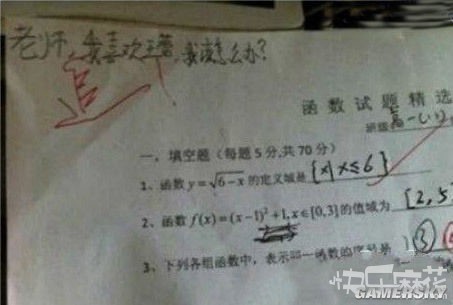 老师,我喜欢王菅,我该怎么办?
追
函数试题精选
班级高一(12)
一、填空题(每题5分,共70分)
1、函数y=√6-x的定义域是{x|x≤6}
2、函数f(x)=(x-1)²+1,x∈[0,3]的值域为[2,5
3、下列各组函数中,表示同一函数的序号是 ③
快乐麻花
GAMERSKY